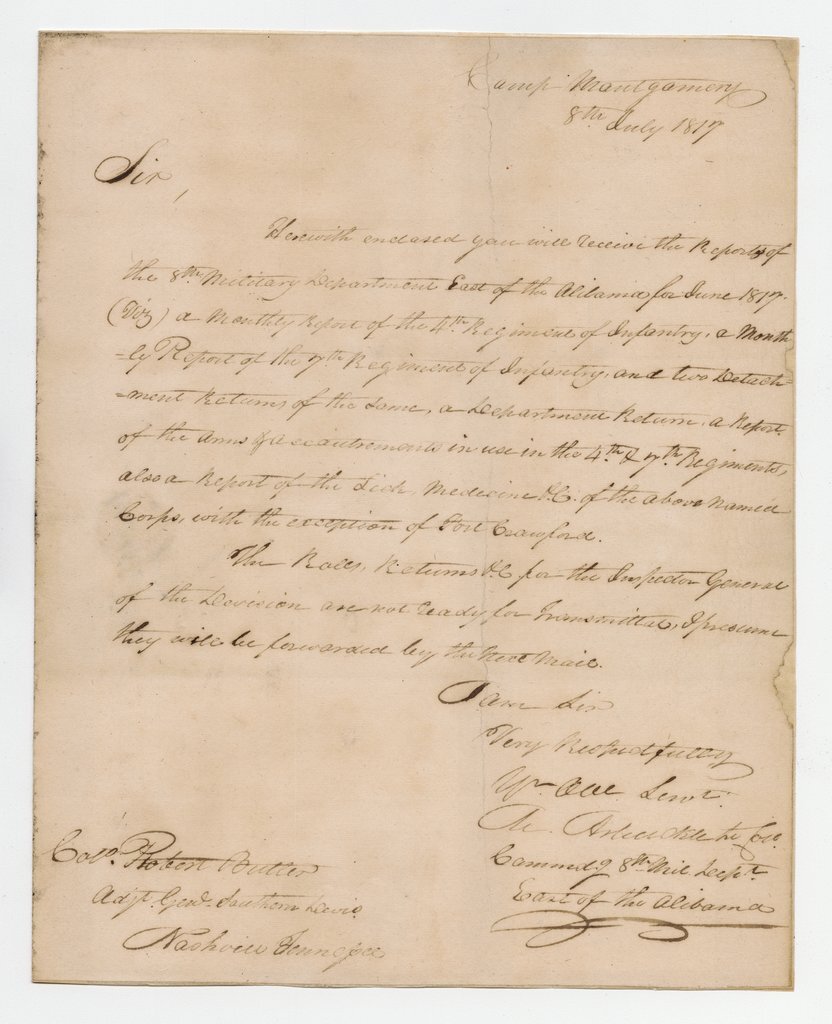 Camp Montgomery
8th July 1817
Sir,
Herewith enclosed you will receive the Reports of
the 8th Military Department East of the Alibama for June 1817.
(Viz) a Monthly Report of the 4th Regiment of Infantry, a Month
=ly Report of the 7th Regiment of Infantry, and two Detach=
=ment Returns of the Same, a Department Return, a Report
of the Arms & Accoutrements in use in the 4th & 7th Regiments,
also a Report of the Sick, Medicine &C. of the above named
Corps, with the exception of Fort Crawford.
The Rolls, Returns &C for the Inspector General
of the Devision are not ready for Transmittal, I presume
they will be forwarded by the next Mail.
I am Sir
Very Respectfully
Yr. Obt. Servt.
M. Arbuckle Lt. Col.
Commdg 8th Mil. Dept.
East of the Alibama
Colo. Robert Butler
Adjt. Genl. Southern Devis.
Nashville Tennessee